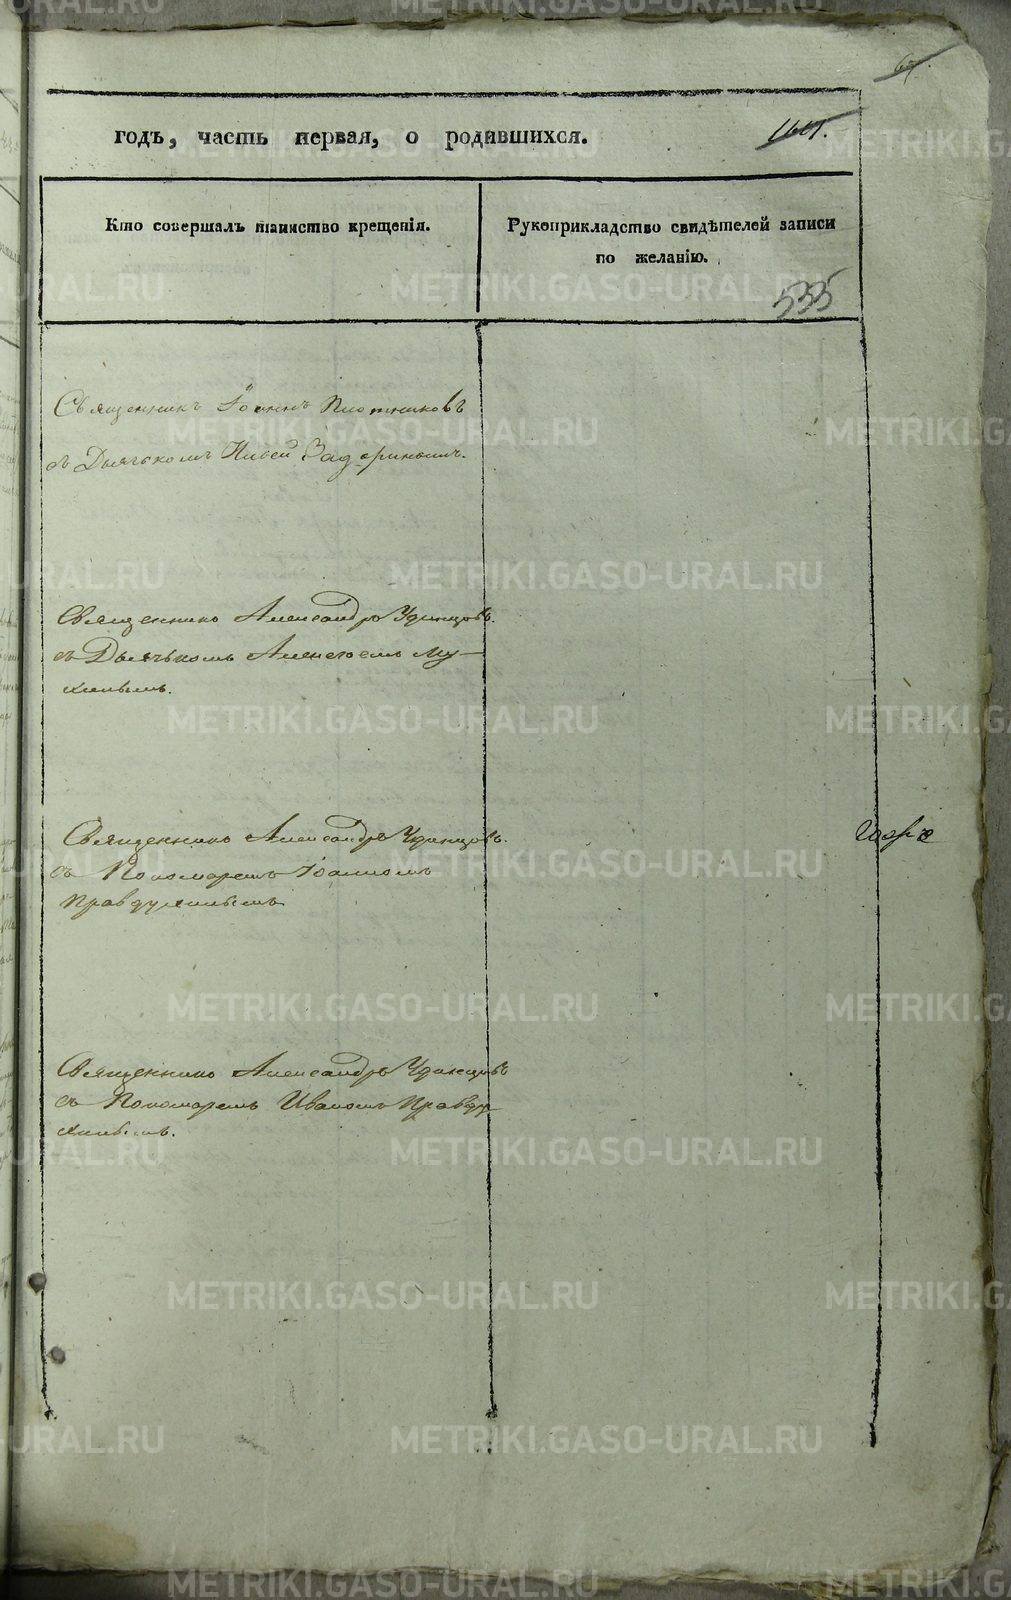 годъ, часть первая, о родившихся.
Кто совершалъ таинство крещенія.
Рукоприкладство свидѣтелей записи
по желанію.
535
Священникъ Іоаннъ Плотниковъ
съ Дьячькомъ Задоринымъ.
Священникъ Александръ Удинцовъ.
съ Дьячькомъ Алексеемъ Му-
хинымъ.
Священникъ Александръ Удинцовъ.
съ Пономаремъ Іоанномъ
Правдухинымъ
Священникъ Александръ Удинцовъ
съ Пономаремъ Иваномъ Правду
хинымъ.
METRIKI.GASO-URAL.RU